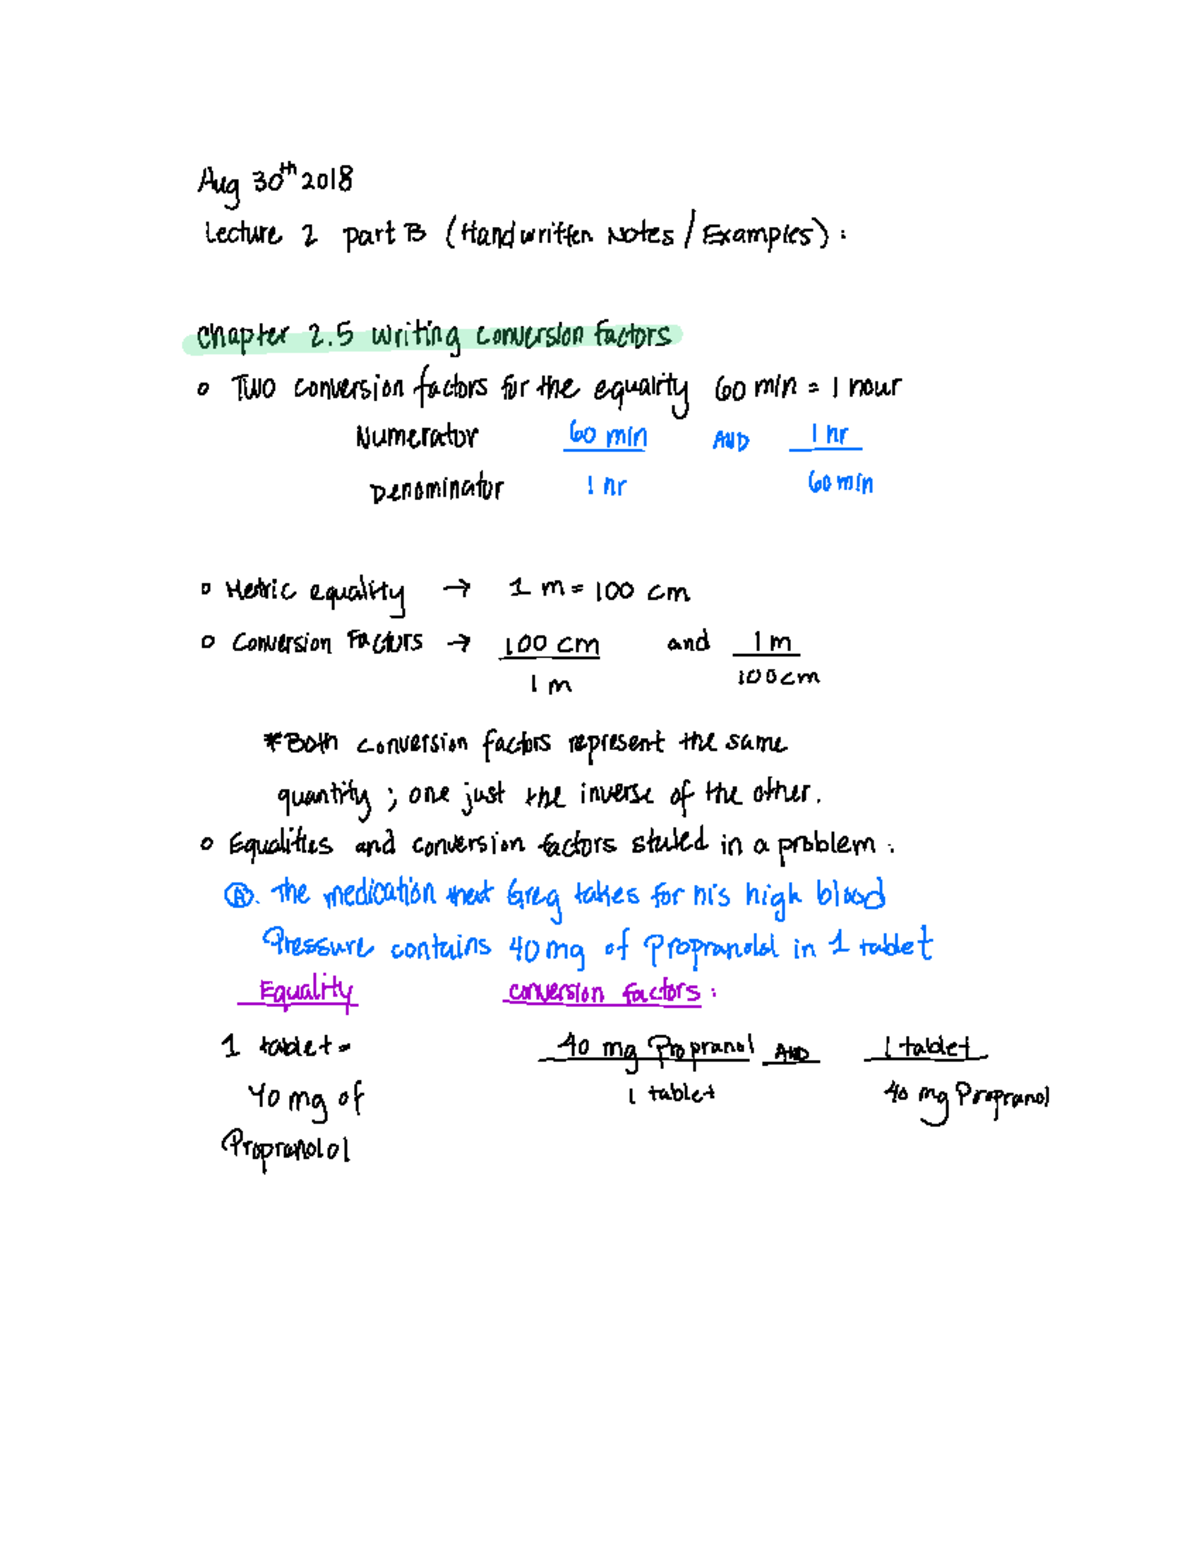 Aug 30th 2018
Lecture 2 part B (Handwritten Notes / Examples) :
Chapter 2.5 Writing Conversion Factors
o Two conversion factors for the equality 60 min = 1 hour
Numerator 60 min AND 1 hr
Denominator 1 hr 60 min
o Metric equality → 1 m = 100 cm
o Conversion Factors → 100 cm and 1 m
1 m 100 cm
*Both conversion factors represent the same
quantity ; one just the inverse of the other.
o Equalities and conversion factors stated in a problem :
(A). The medication that Greg takes for his high blood
Pressure contains 40 mg of Propranolol in 1 tablet
Equality conversion factors :
1 tablet = 40 mg Propranol AND 1 tablet
40 mg of 1 tablet 40 mg Propranol
Propranolol